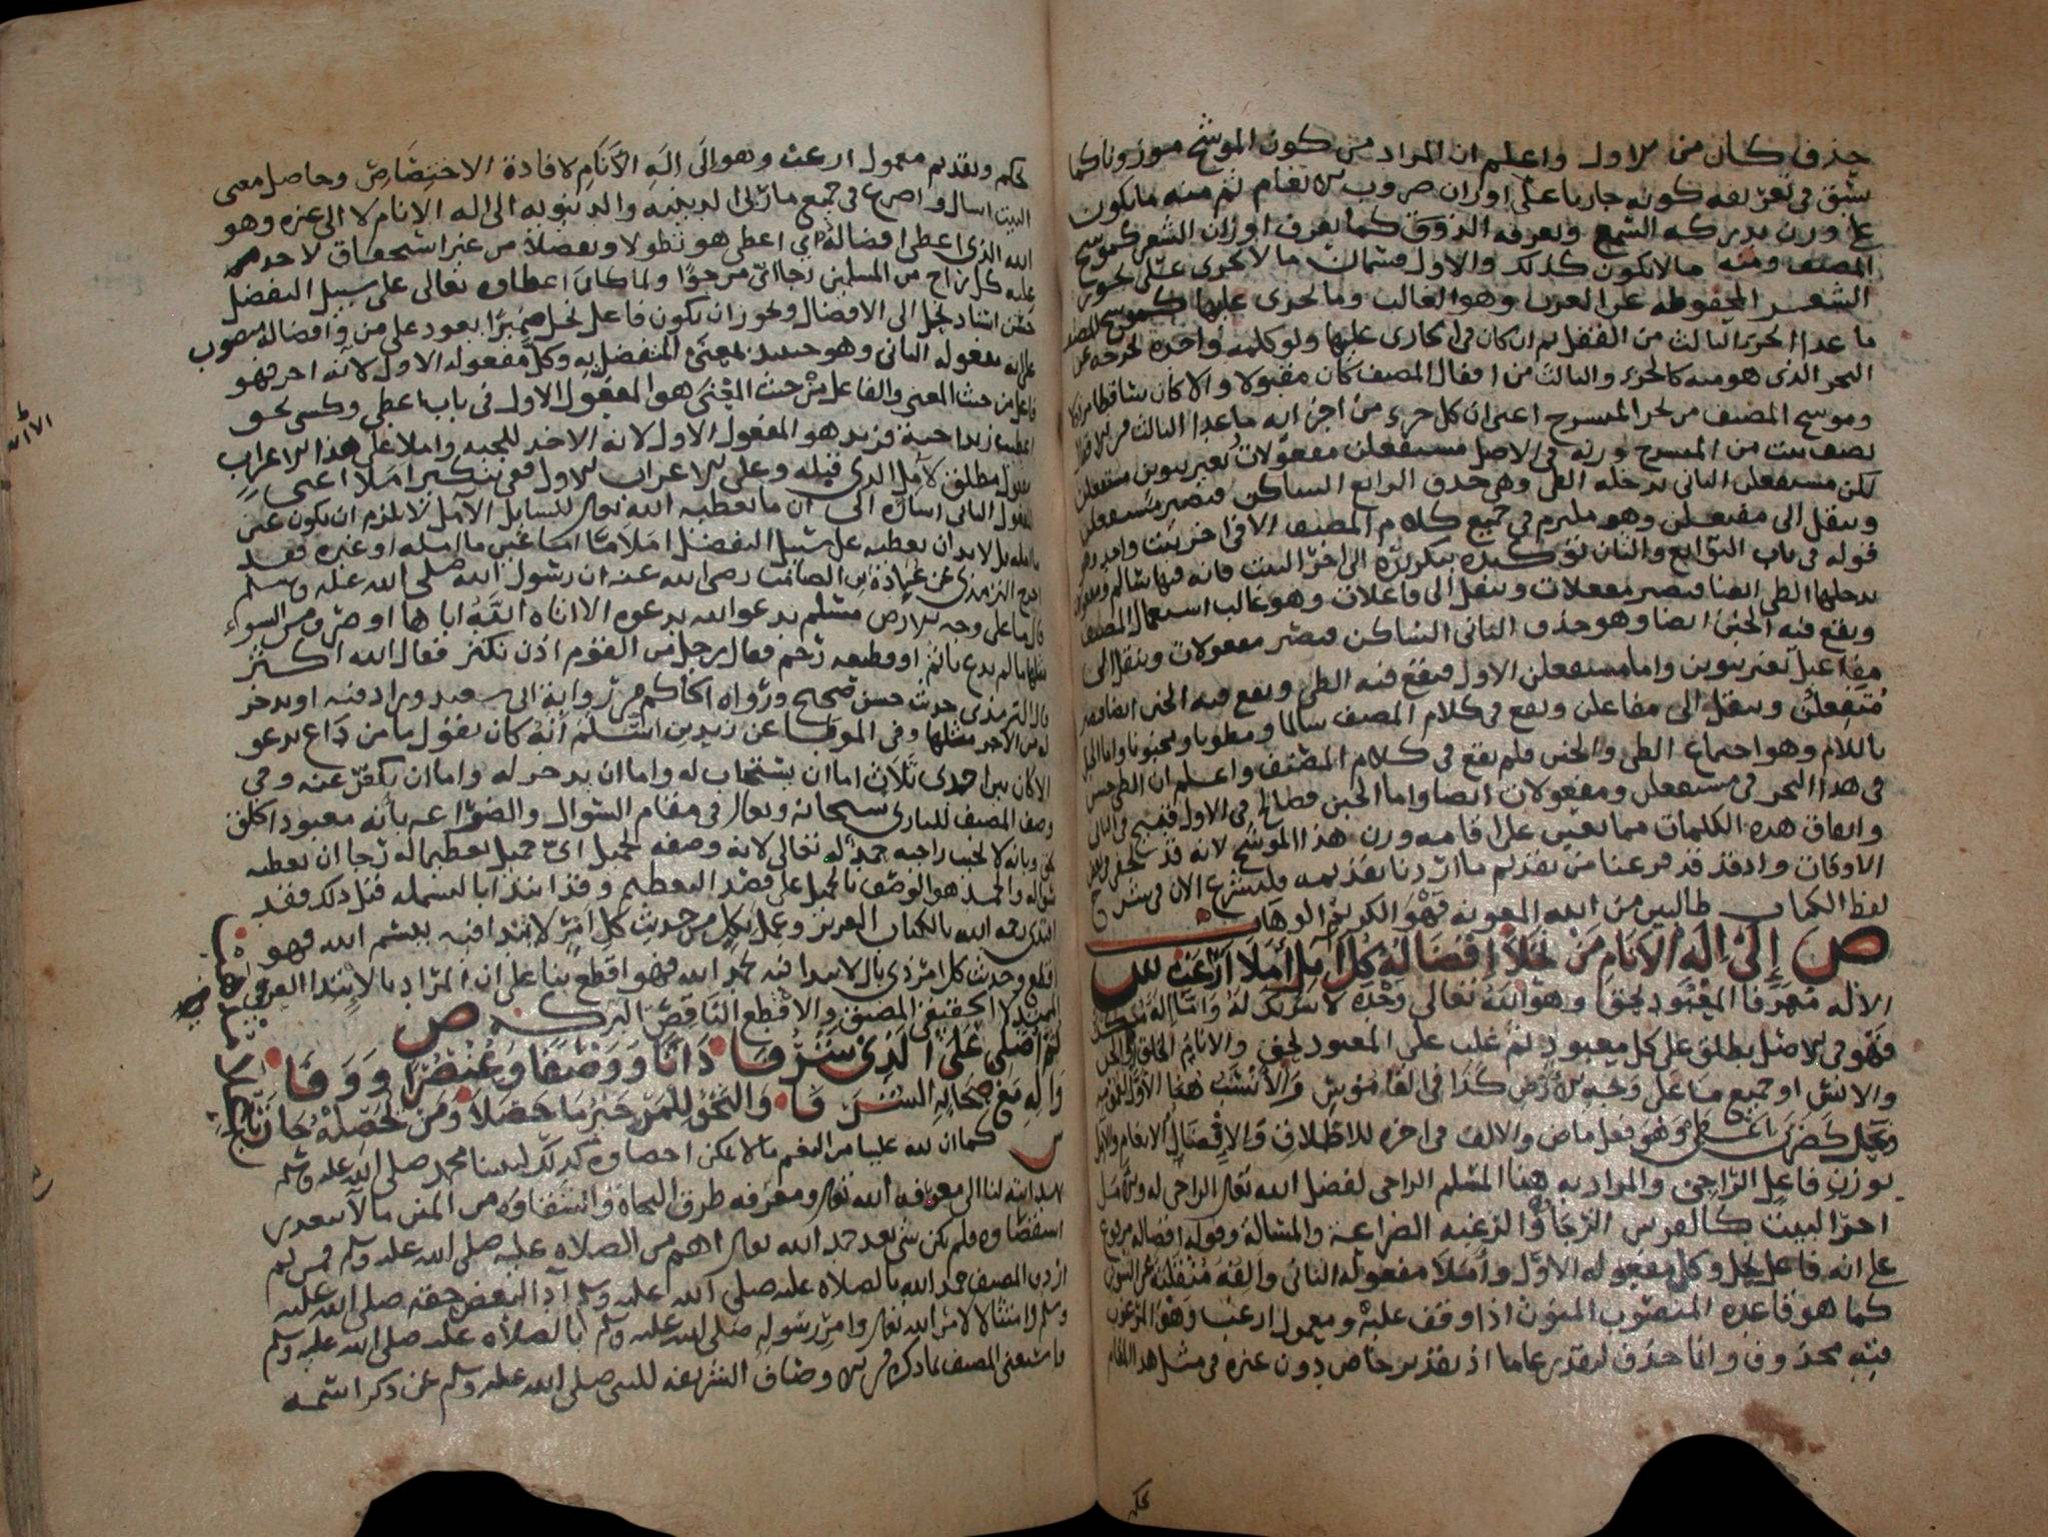 حذف كان من الاول واعلم ان المراد من كون الموشح موزونا كما
سبق في تعريفه كونه جاريا على اوزان ضروب الانغام ثم منه ما يكون
على وزن يدركه السمع ويعرفه الذوق كما يعرف اوزان الشعر كموشح
المصنف ومنه ما لا يكون كذلك والاول قسمان ما لا يجري على بحور
الشعر المحفوظه عن العرب وهو الغالب وما يجري عليها كموشح المصنف
ما عدا الجزء الثالث من القفل ثم ان كان جاري عليها ولو كلمه واحده تخرجه عن
البحر الذي هو منه كالجزء والثالث من اقفال المصنف كان مقبولا والا كان ساقطا
وموشح المصنف من بحر المنسرح اعني ان كل جزء من اجزايه ما عدا الثالث من الاقفال
نصف بيت من المنسرح وزنه في الاصل مستفعلن مفعولات بغير تنوين مستفعلن
لكن مستفعلن الثاني يدخله الطي وهو حذف الرابع الساكن فيصير مستعلن
وينقل الى مفتعلن وهو ملتزم في جميع كلام المصنف الا في اخر بيت واحد وهو
قوله في باب التوابع والثان توكيده بتكريره الى اخر البيت فانه فيها سالم ومفعولات
يدخلها الطي ايضا فيصير مفعلات وينقل الى فاعلات وهو غالب استعمال المصنف
ويقع فيه الخبن ايضا وهو حذف الثاني الساكن فيصير معولات وينقل الى
مفاعيل بغير تنوين واما مستفعلن الاول فيقع فيه الطي ويقع فيه الخبن ايضا فيصير
متفعلن وينقل الى مفاعلن ويقع في كلام المصنف سالما ومطويا ومخبونا واما الخبل
باللام وهو اجتماع الطي والخبن فلم يقع في كلام المصنف واعلم ان الطي حسن
في هذا البحر في مستفعلن ومفعولات ايضا واما الخبن فصالح في الاول قبيح في الثاني
واتفاق هذه الكلمات مما يعين على اقامه وزن هذا الموشح لانه قد يخفى في بعض
الاوقات واذ قد فرغنا من تقديم ما اردنا تقديمه فلنشرع الان في شرح
لفظ الكتاب طالبين من الله المعونه فهو الكريم الوهاب
ص إِلَى إِلَهِ الأَنَامِ مَنْ نَحَلاَ إِفْضَالُهُ كُلَّ آمِلٍ أَمَلاَ اَرْغَبُ ش
الاله معرفا المعبود بحق وهو الله تعالى وحده لا شريك له واما اله منكرا
فهو في الاصل يطلق على كل معبود ثم غلب على المعبود بحق والانام الخلق او الجن
والانس او جميع ما على وجه الارض كذا في القاموس والانسب هنا الاول
ونحل كضرب اعطى وهو فعل ماض والالف في اخره للاطلاق والافضال الانعام والامل
بوزن فاعل الراجي والمراد به هنا المسلم الراجي لفضل الله تعالى الراجي له والامل
اخر البيت كالفرس الرجا والرغبه الضراعة والمسالة وقوله افضاله مرفوع
على انه فاعل نحل وكل مفعوله الاول واملا مفعوله الثاني والفه منقلبة عن التنوين
كما هو قاعده المنصوب المنون اذا وقف عليه ومعمول ارغب وهو المرغوب
فيه محذوف وانما حذف ليقدر عاما اذ تقدير خاص دون غيره في مثل هذا المقام
تحكم
تحكم وتقديم معمول ارغب وهو الى اله الانام لافادة الاختصاص وحاصل معنى
البيت اسال واضرع في جميع ماربي الدينيه والدنيويه الى اله الانام لا الى غيره وهو
الله الذي اعطى افضاله اي اعطى هو تطولا وتفضلا من غير استحقاق لاحد
عليه كل راج من المسلمين رجا اي مرجوا ولما كان اعطاوه تعالى على سبيل التفضل
حسن اسناد نحل الى الافضال ويجوز ان يكون فاعل نحل ضميرا يعود على من وافضاله منصوب
على انه مفعوله الثاني وهو حينئذ بمعنى المتفضل به وكل مفعوله الاول لانه اخر فهو
فاعل من حيث المعنى والفاعل من حيث المعنى هو المفعول الاول في باب اعطى وكسى نحو
اعطيت زيدا جبة فزيد هو المفعول الاول لانه الاخذ للجبه واملا على هذا الاعراب
مفعول مطلق لآمل الذي قبله وعلى الاعراب الاول ففي تنكير املا اعني
المفعول الثاني اشارة الى ان ما يعطيه الله تعالى للسايل الآمل لا يلزم ان يكون عين
ما امله بل لا بد ان يعطيه على سبيل التفضل املا ما اما عين ما امله او غيره فقد
اخرج الترمذي عن عبادة بن الصامت رضي الله عنه ان رسول الله صلى الله عليه وسلم
قال ما على وجه الارض مسلم يدعو الله بدعوه الا اتاه الله اياها او صرف من السوء
مثلها ما لم يدع باثم او قطيعه رحم فقال رجل من القوم اذن نكثر فقال الله اكثر
قال الترمذي حديث حسن صحيح ورواه الحاكم من رواية ابي سعيد وزاد فيه او يدخر
له من الاجر مثلها وفي الموطا عن زيد بن اسلم انه كان يقول ما من داع يدعو
الا كان بين احدى ثلاث اما ان يستجاب له واما ان يدخر له واما ان يكفر عنه وفي
وصف المصنف للباري سبحانه وتعالى في مقام السوال والضراعه بانه معبود الخلق
بحق وبانه لا يخيب راجيه حمد له تعالى لانه وصفه بجميل اي جميل تعظيما له رجا ان يعطيه
سواله والحمد هو الوصف بالجميل على قصد التعظيم وقد ابتدا بالبسمله قبل ذلك فقد
اقتدى رحمه الله بالكتاب العزيز وعمل بكل من حديث كل امر لا يبتدا فيه ببسم الله فهو
اقطع وحديث كل امر ذي بال لا يبدا فيه بحمد الله فهو اقطع بنا على ان المراد بالابتدا العرفي
الممتد لا الحقيقي المضيق والاقطع الناقص البركه ص
ثُمَّ أُصَلِّي عَلَى الَّذِي شَرُفَا ذَاتًا وَوَصْفًا وَعُنْصُرًا وَوَفَا
وَآلِهِ مَعْ صِحَابِهِ الشُّرَفَا وَالنَّحْوُ لِلْمَرْءِ خَيْرُ مَا حَصَّلاَ وَمَنْ يُحَصِّلْهُ حَازَ
ش كما ان لله علينا من النعم ما لا يمكن احصاوه كذلك لنبينا محمد صلى الله عليه وسلم
بهدايته لنا الى معرفه الله تعالى ومعرفه طرق النجاة واستقاوه من المنن ما لا يبعد
استقصاوه فلم يكن شي بعد حمد الله تعالى اهم من الصلاه عليه صلى الله عليه وسلم فمن ثم
اردف المصنف حمد الله بالصلاه عليه صلى الله عليه وسلم ادا لبعض حقه صلى الله عليه
وسلم وامتثالا لامر الله تعالى وامر رسوله صلى الله عليه وسلم بالصلاه عليه صلى الله عليه وسلم
واستغنى المصنف بما ذكره من الاوصاف الشريفه للنبي صلى الله عليه وسلم عن ذكر اسمه